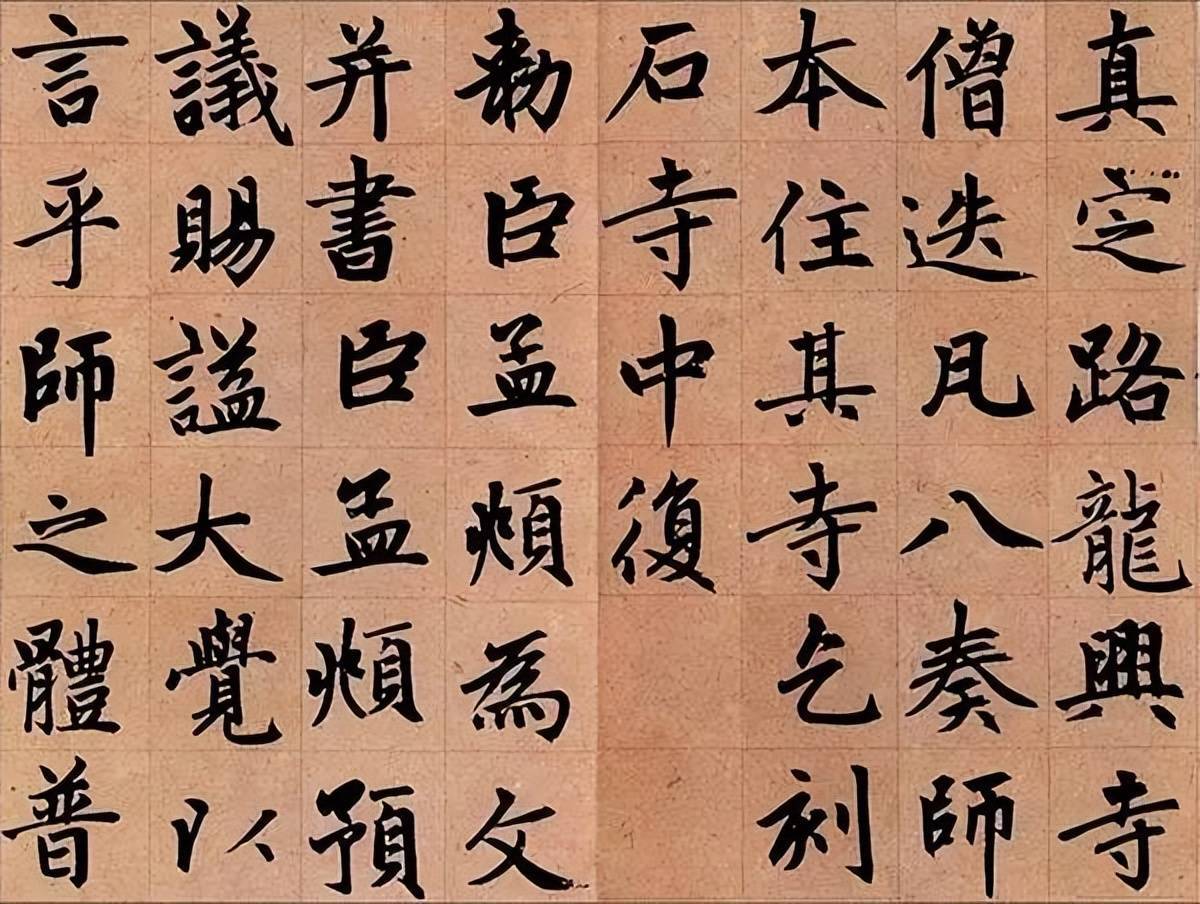 真定路龍興寺
僧迭凡八奏師
本住其寺乞刻
石寺中復
勅臣孟頫為文
并書臣孟頫預
議賜謚大覺以
言乎師之體普